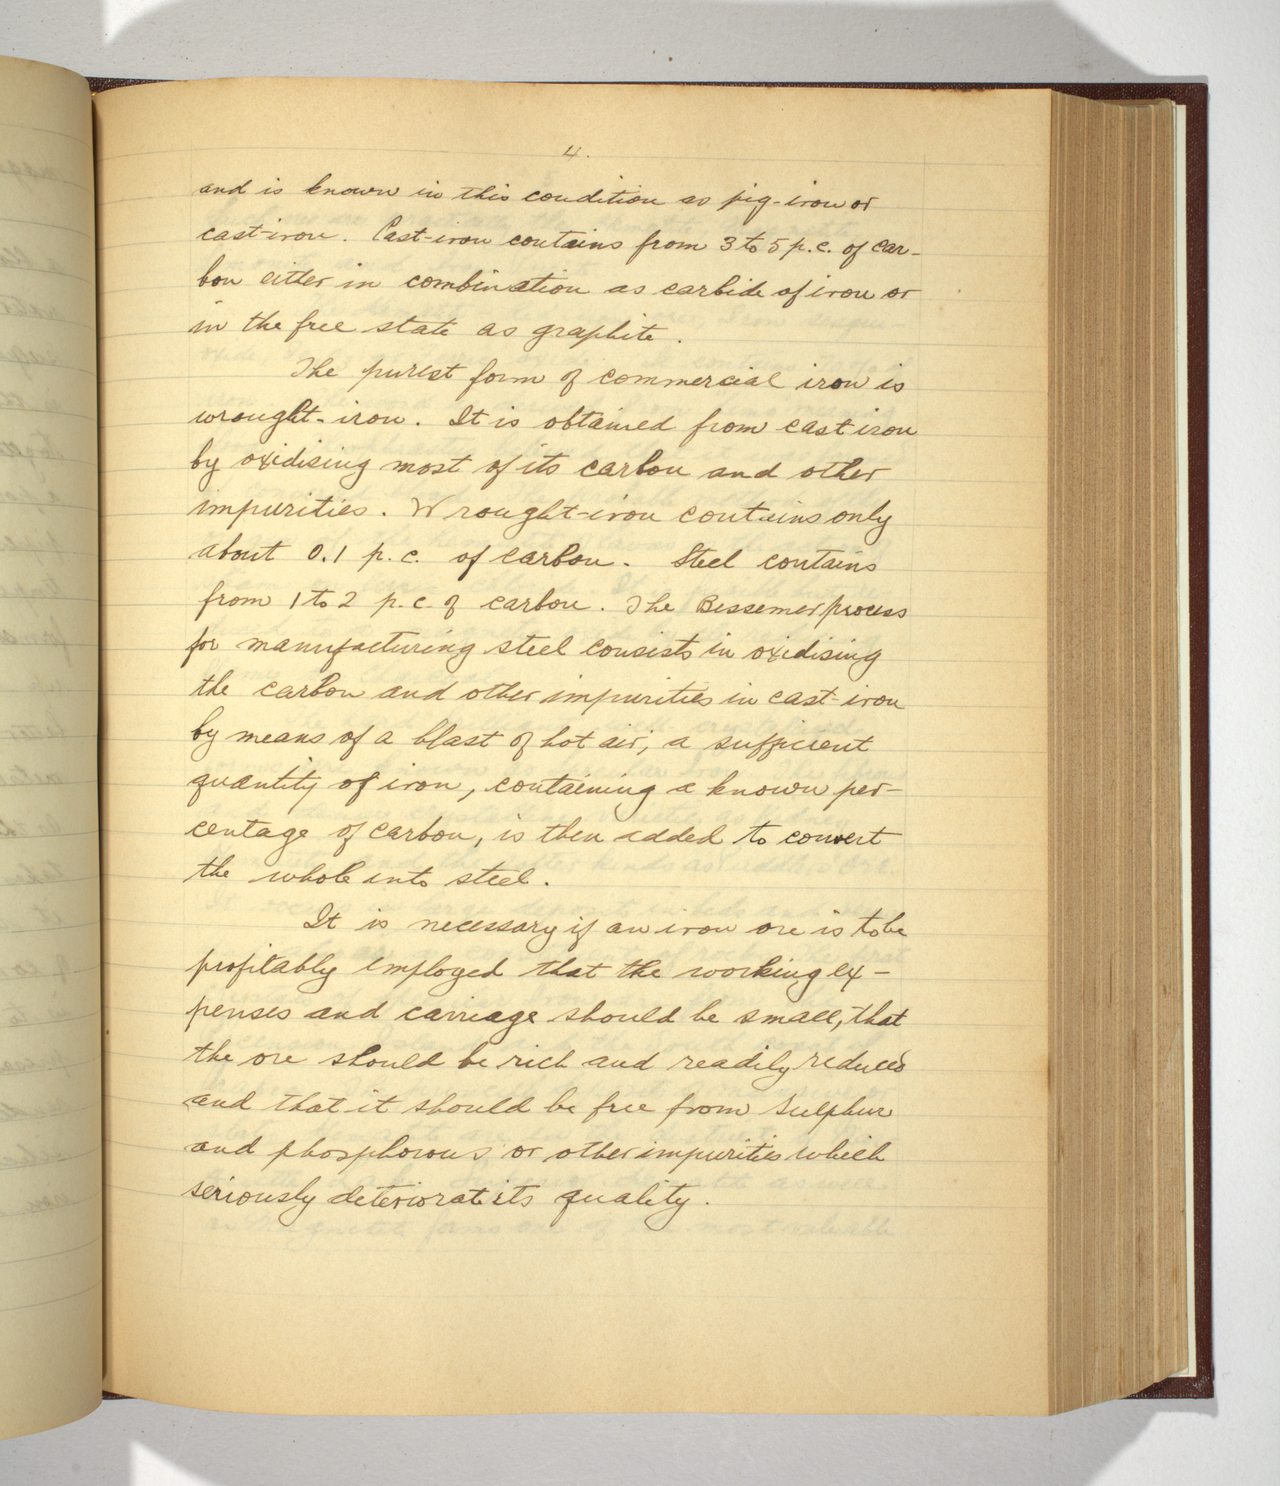 4.
and is known in this condition as pig-iron or
cast-iron. Cast-iron contains from 3 to 5 p.c. of car-
bon either in combination as carbide of iron or
in the free state as graphite.
The purest form of commercial iron is
wrought-iron. It is obtained from cast iron
by oxidising most of its carbon and other
impurities. Wrought-iron contains only
about 0.1 p.c. of carbon. Steel contains
from 1 to 2 p.c. of carbon. The Bessemer process
for manufacturing steel consists in oxidising
the carbon and other impurities in cast-iron
by means of a blast of hot air; a sufficient
quantity of iron, containing a known per-
centage of carbon, is then added to convert
the whole into steel.
It is necessary if an iron ore is to be
profitably employed that the working ex-
penses and carriage should be small, that
the ore should be rich and readily reduced
and that it should be free from Sulphur
and phosphorous or other impurities which
seriously deteriorat its quality.